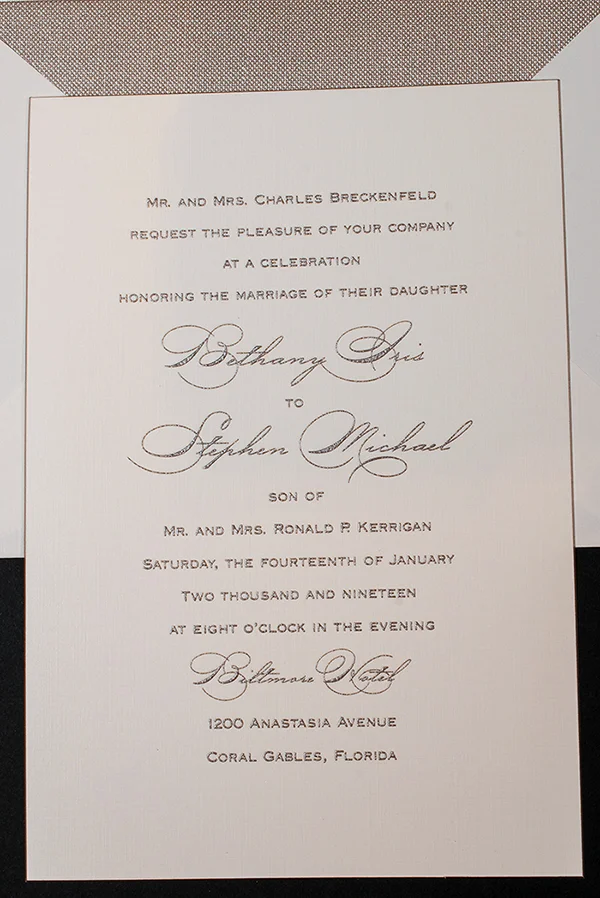 Mr. and Mrs. Charles Breckenfeld
request the pleasure of your company
at a celebration
honoring the marriage of their daughter
Bethany Iris
to
Stephen Michael
son of
Mr. and Mrs. Ronald P. Kerrigan
Saturday, the fourteenth of January
Two thousand and nineteen
at eight o'clock in the evening
Biltmore Hotel
1200 Anastasia Avenue
Coral Gables, Florida